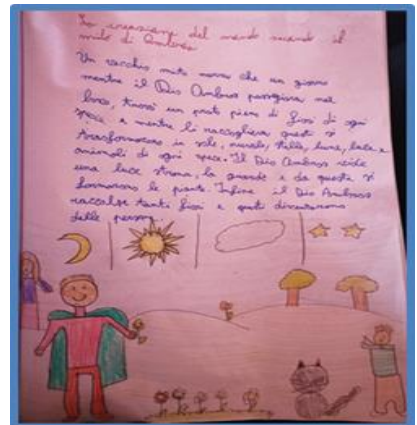 La creazione del mondo secondo il
mito di Ambros
Un vecchio mito narra che un giorno
mentre il Dio Ambros passeggiava nel
bosco, trovò un prato pieno di fiori di ogni
specie e mentre li raccoglieva questi si
trasformarono in sole, nuvole, stelle, luna, laghi e
animali di ogni specie. Il Dio Ambros vide
una luce strana, la guardò e da questa si
formarono le piante. Infine il Dio Ambros
raccolse tanti fiori e questi diventarono
delle persone.